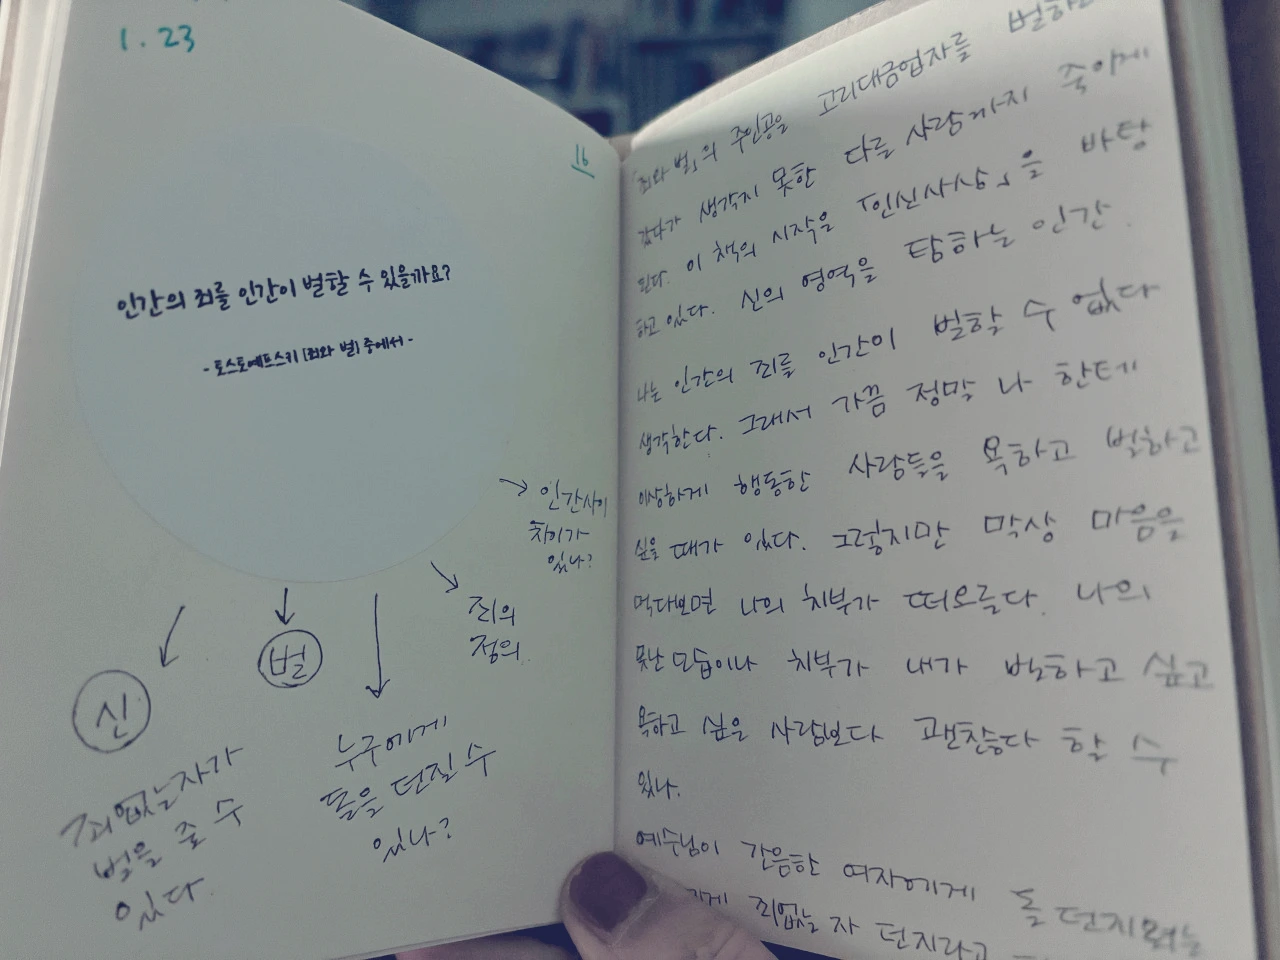 1. 23
16
인간의 죄를 인간이 벌할 수 있을까요?
- 도스토예프스키 [죄와 벌] 중에서 -
인간사이
차이가
있나?
죄의
정의
벌
신
죄없는자가
벌을 줄 수
있다.
누구에게
돌을 던질 수
있나?
「죄와 벌」의 주인공은 고리대금업자를
갔다가 생각지 못한 다른 사람까지 죽이게
된다. 이 책의 시작은 「인신사상」을 바탕
하고 있다. 신의 영역을 탐하는 인간.
나는 인간의 죄를 인간이 벌할 수 없다
생각한다. 그래서 가끔 정말 나 한테
이상하게 행동한 사람들을 욕하고 벌하고
싶을 때가 있다. 그렇지만 막상 마음을
먹다보면 나의 치부가 떠오른다. 나의
못난 모습이나 치부가 내가 벌하고 싶고
욕하고 싶은 사람보다 괜찮다 할 수
있나.
예수님이 간음한 여자에게 돌 던지려는
죄없는 자 던지라고